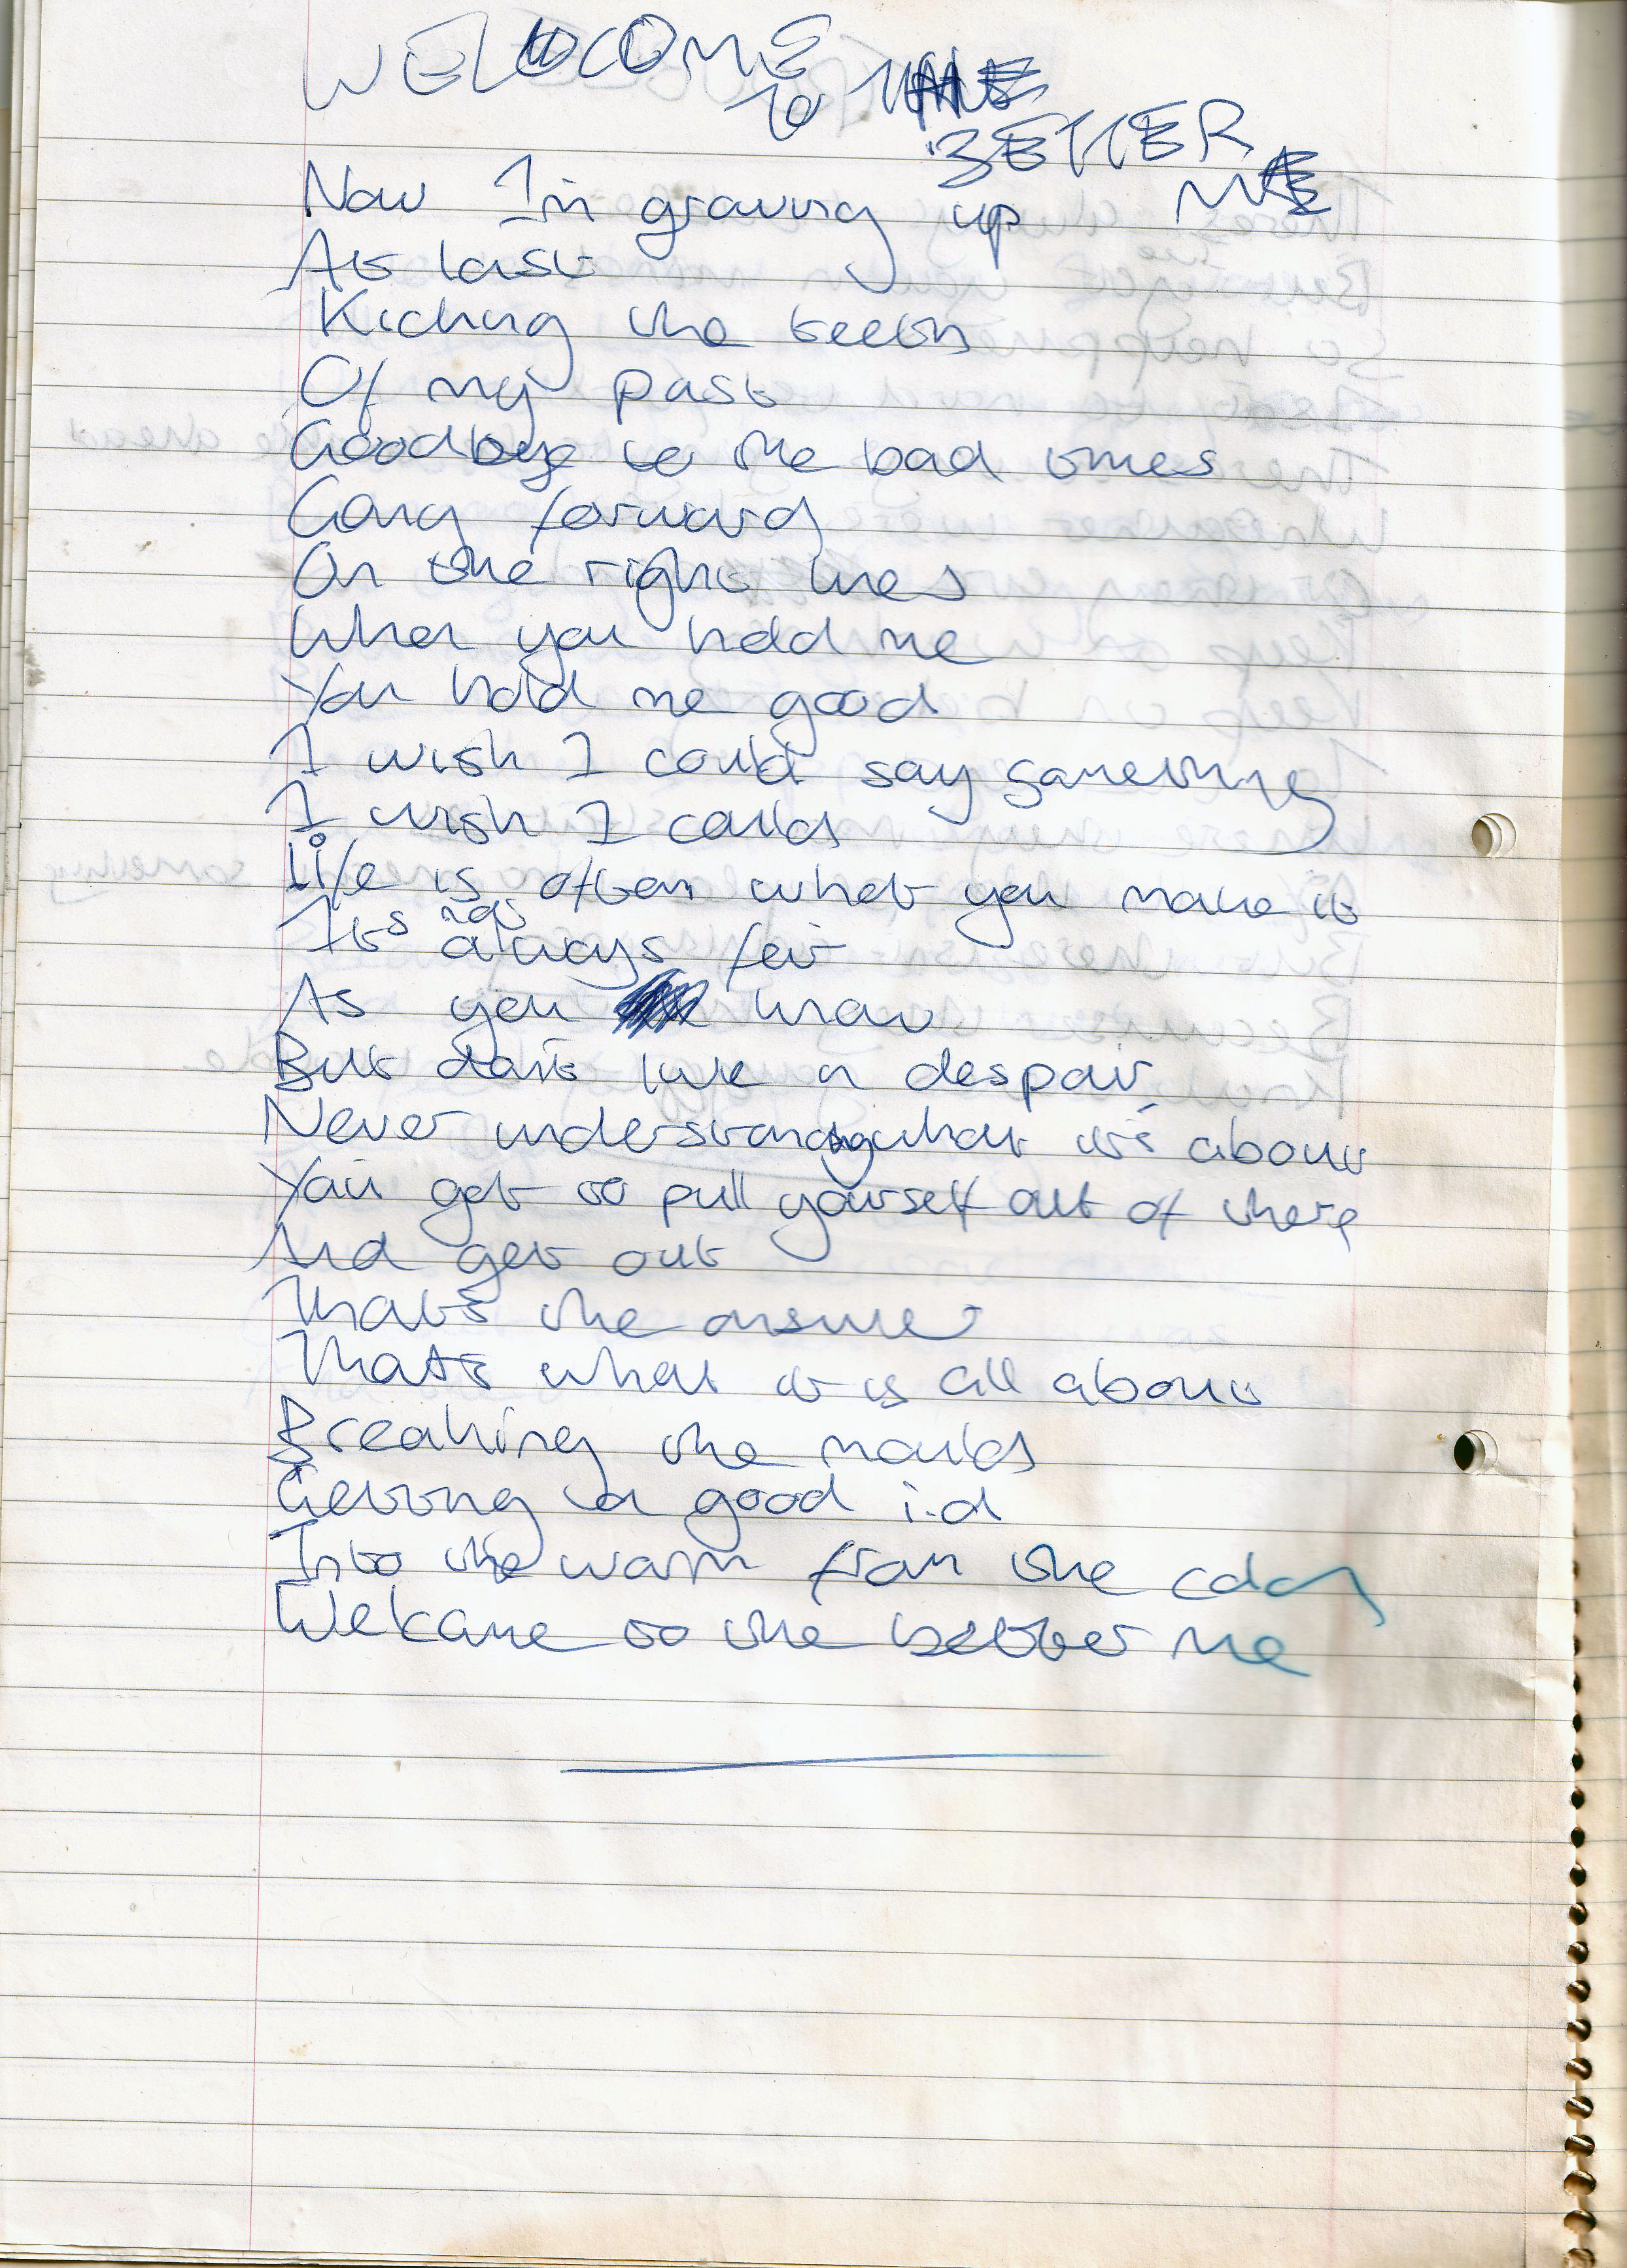 WELCOME
TO THE
BETTER
ME
Now I'm growing up
At last
Kicking the teeth
Of my past
Goodbye to the bad times
Going forward
On the right lines
When you hold me
You hold me good
I wish I could say something
I wish I could
Life is often what you make it
Its not always fair
As you know
But don't live in despair
Never understanding what it's about
You've got to pull yourself out of there
And get out
That's the answer
That's what it is all about
Breaking the moulds
Getting a good i.d
Into the warm from the cold
Welcome to the better me